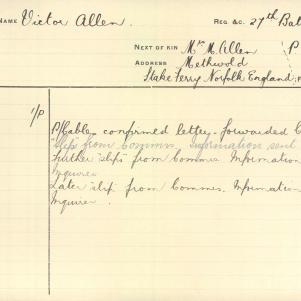 NAME Victor Allen. REG. &C. 27th Bat
NEXT OF KIN Mrs M. Allen P
ADDRESS Methwold
Stoke Ferry Norfolk England
1/P
P/Cable confirmed letter forwarded
"Slip" from Commrs. Information sent
Further slips from Commrs Information
Inquirer
Later slip from Commrs. Information
Inquirer.